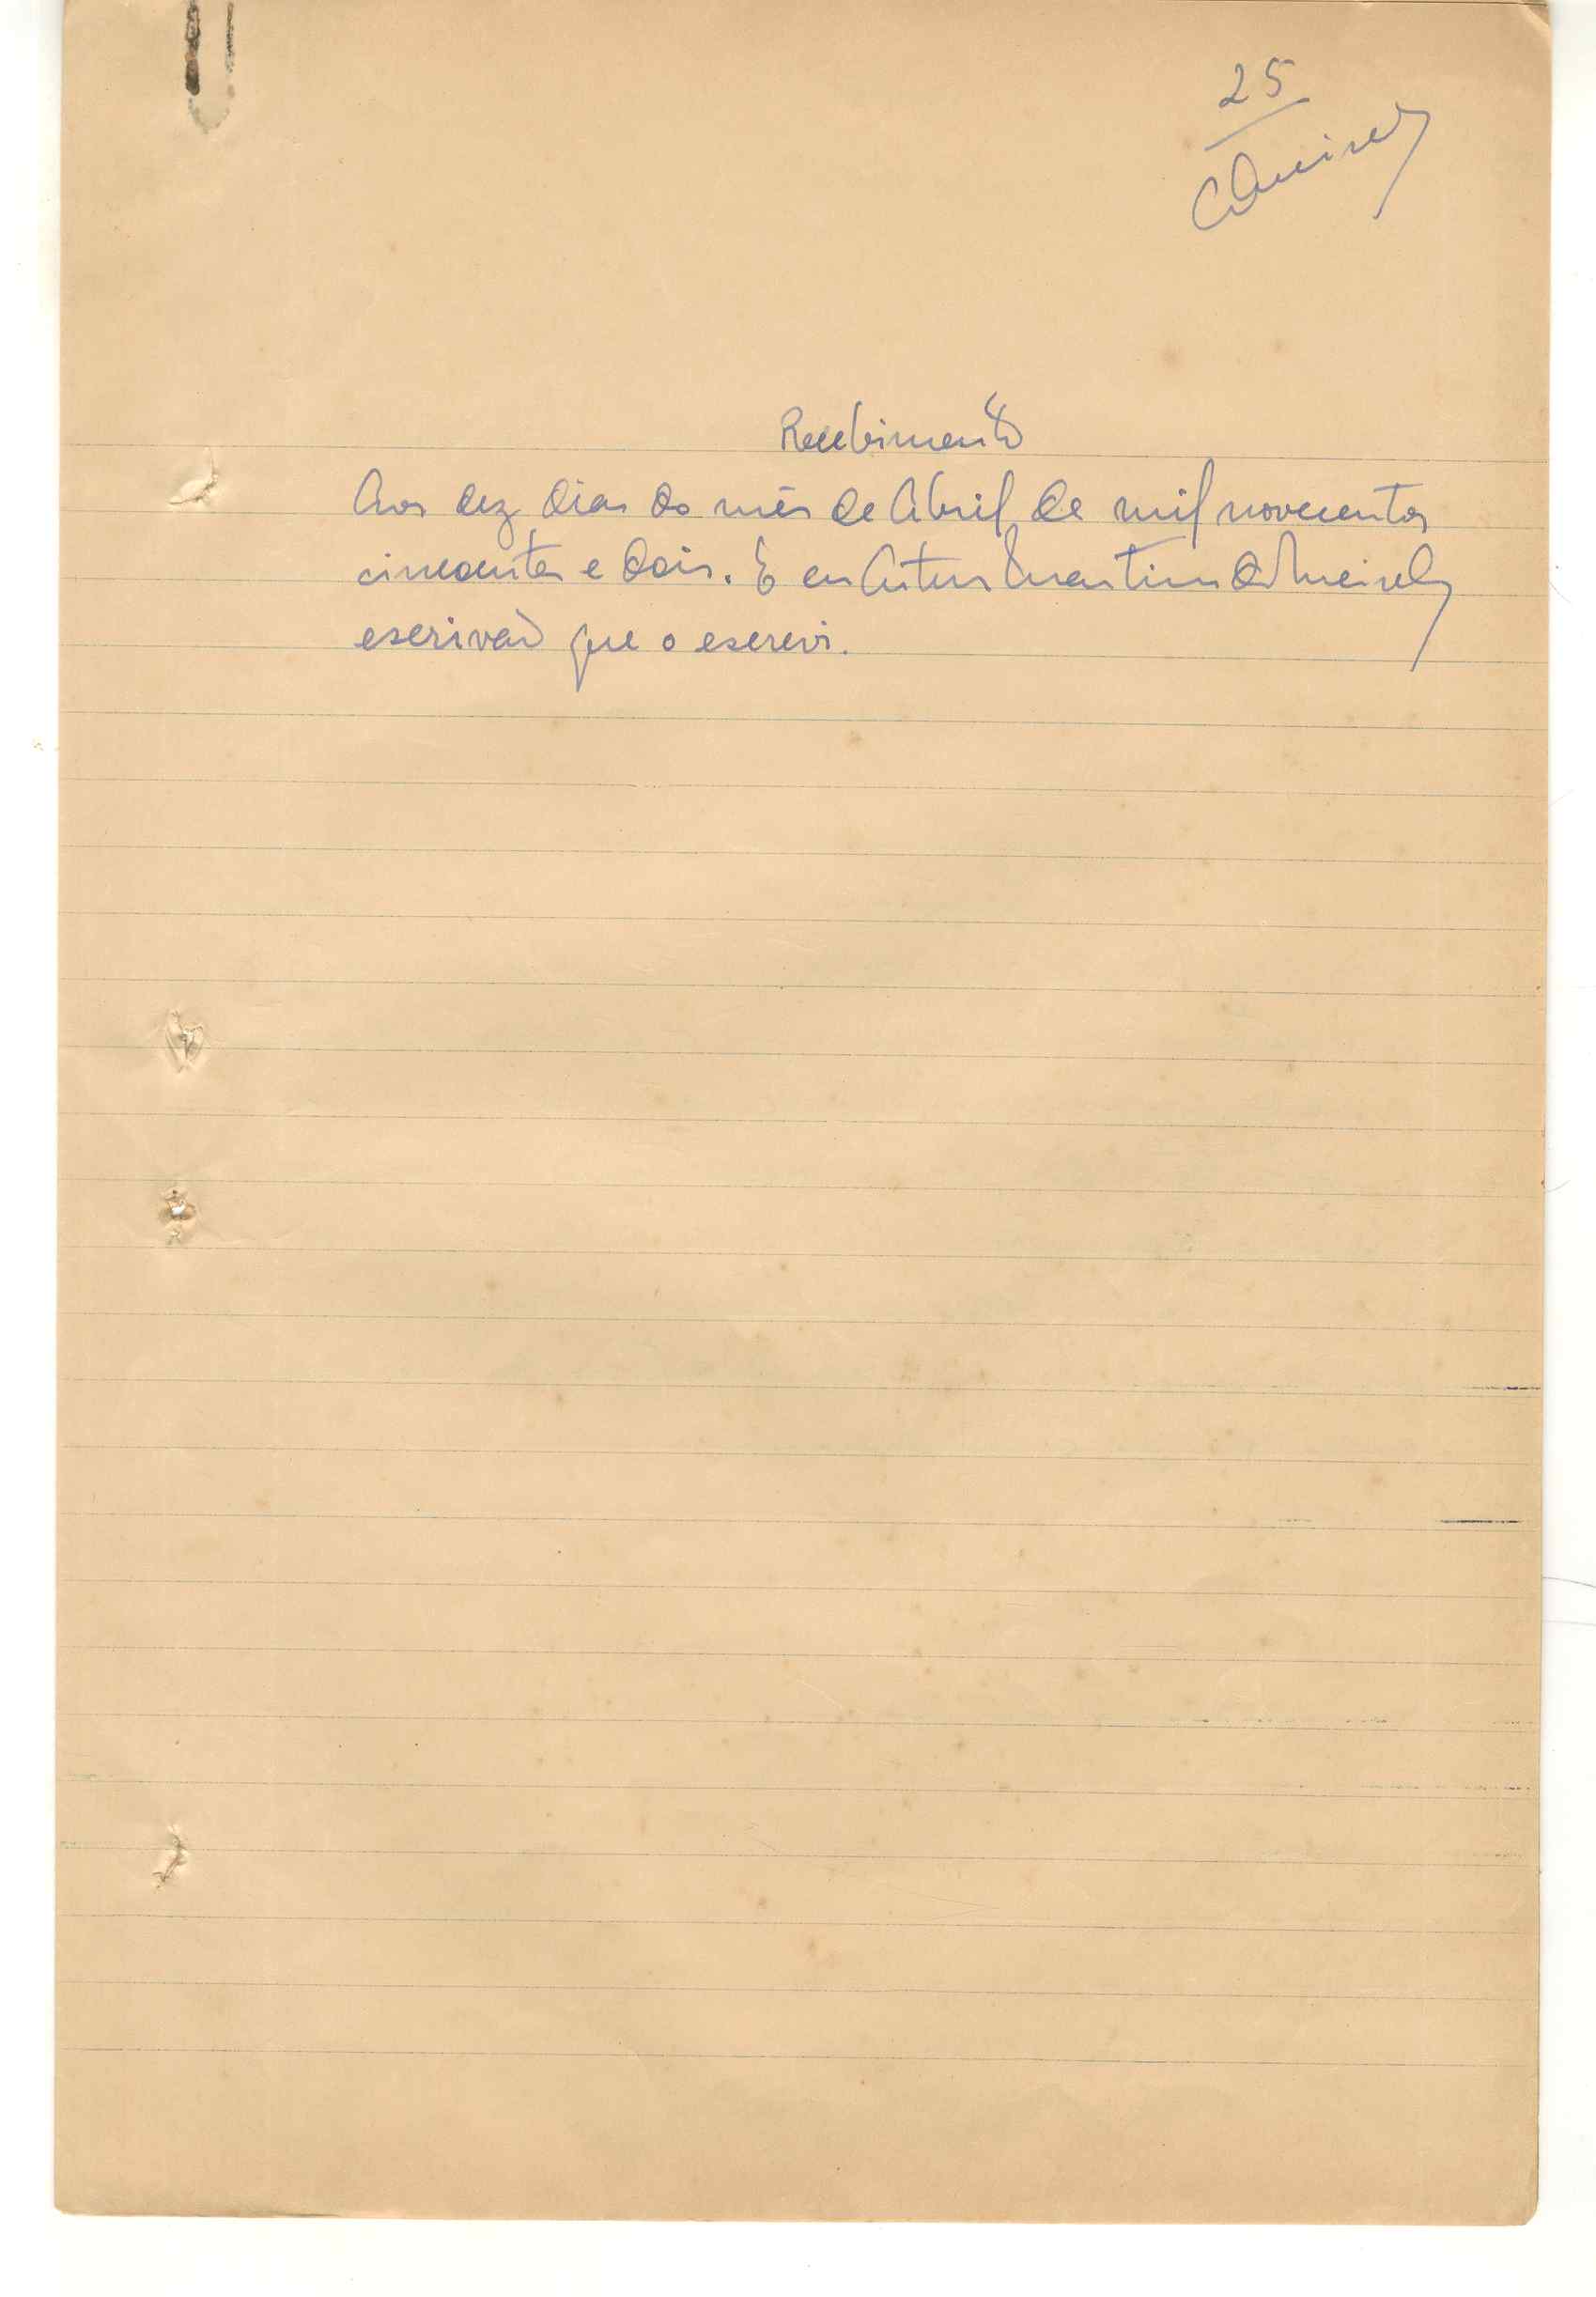 25
Recebimento
Aos dez dias do mês de Abril de mil novecentos
cincoenta e dois. E eu Artur Martins
escrivão que o escrevi.